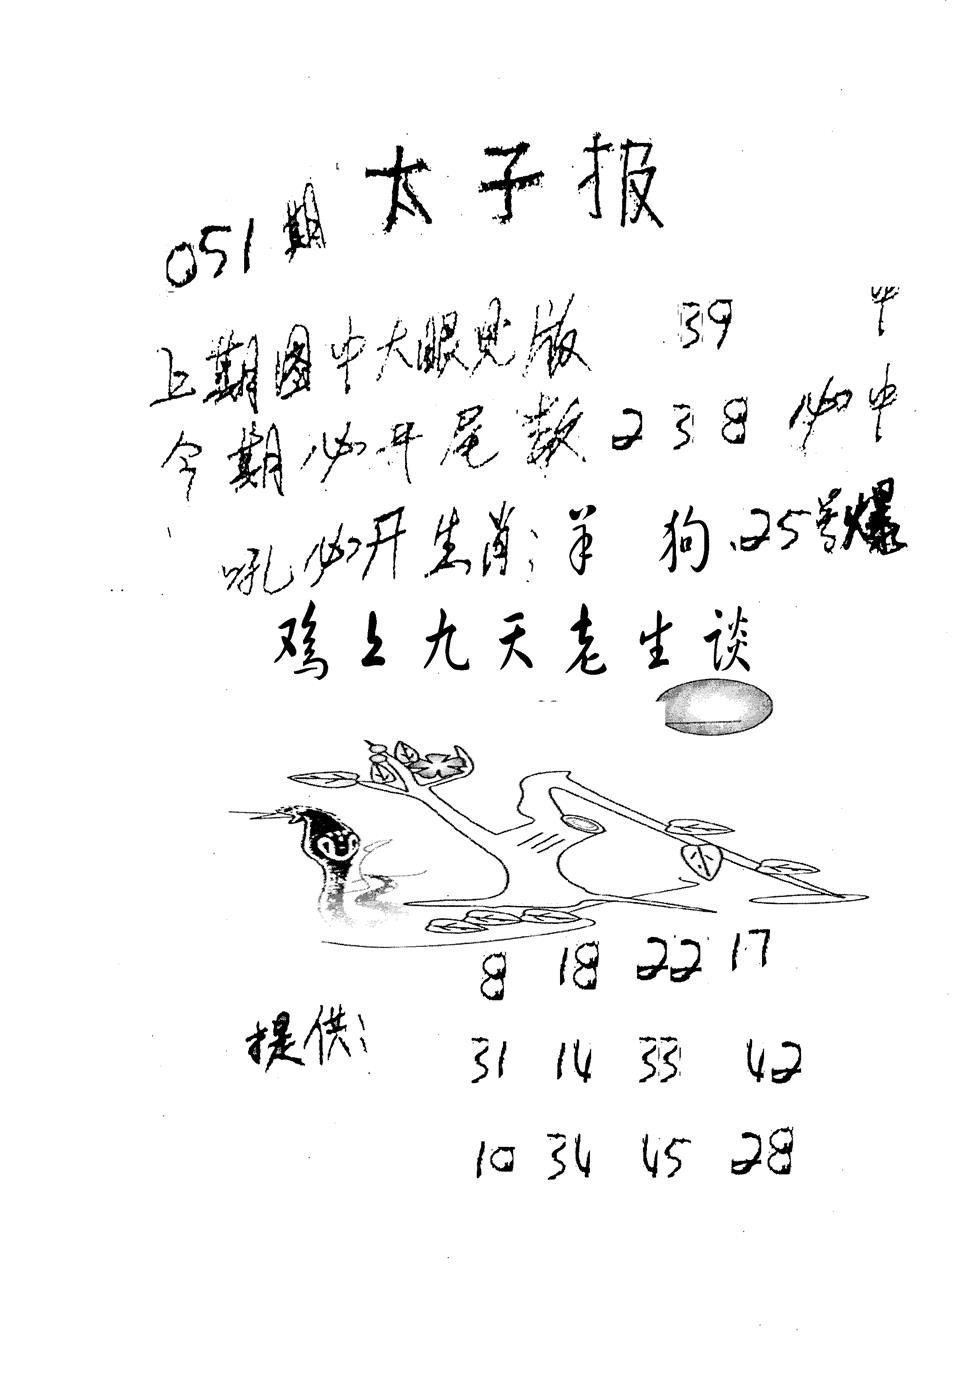 太子报
051期
上期图中大眼见版 39 中
今期必开尾数238必中
吼必开生肖:羊 狗.25号爆
鸡上九天老生谈
小
8 18 22 17
提供:
31 14 33 42
10 34 45 28